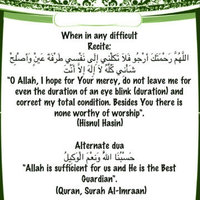 When in any difficult
Recite:
اللَّهُمَّ رَحْمَتَكَ أَرْجُو فَلَا تَكِلْنِي إِلَى نَفْسِي طَرْفَةَ عَيْنٍ وَأَصْلِحْ
شَأْنِي كُلَّهُ لَا إِلَهَ إِلَّا أَنْتَ
"O Allah, I hope for Your mercy, do not leave me for
even the duration of an eye blink (duration) and
correct my total condition. Besides You there is
none worthy of worship".
(Hisnul Hasin)
Alternate dua
حَسْبُنَا اللَّهُ وَنِعْمَ الْوَكِيلُ
"Allah is sufficient for us and He is the Best
Guardian".
(Quran, Surah Al-Imraan)